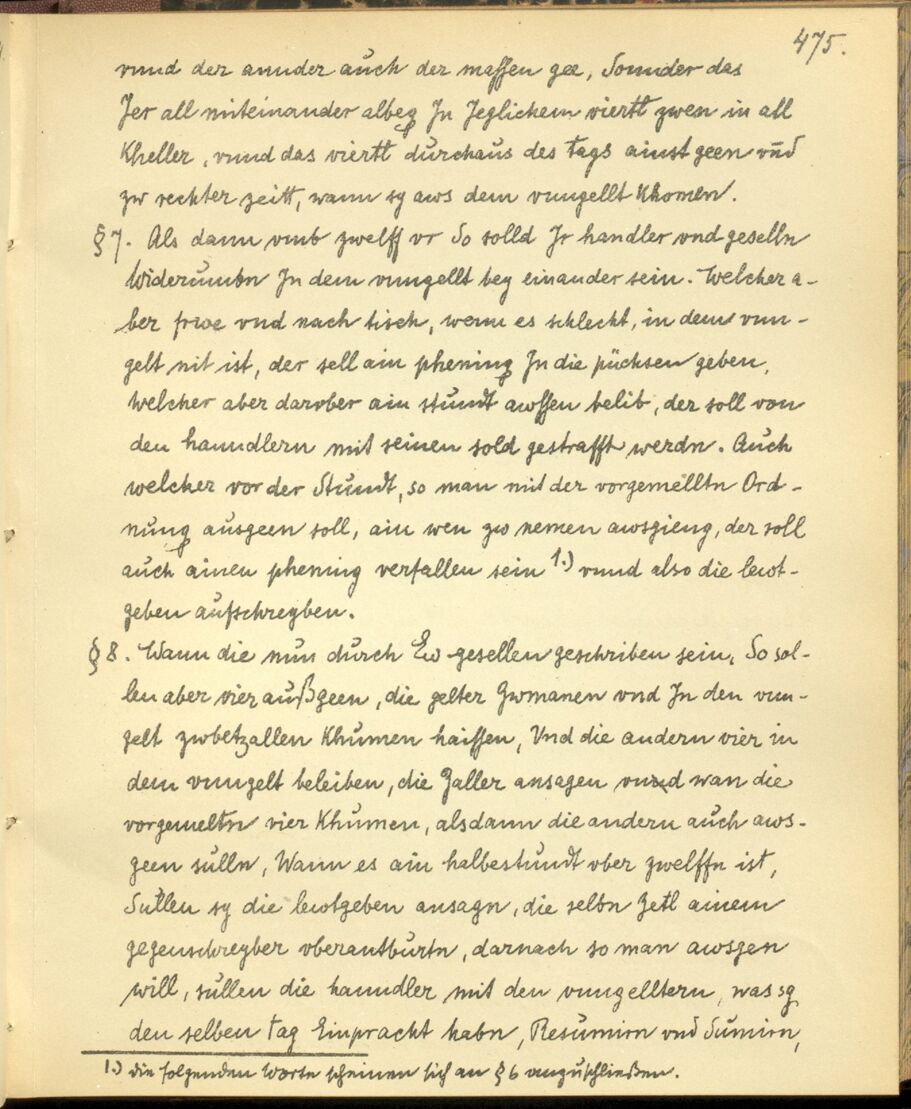 475.
vnnd der annder auch der massen gee, Sonnder das
Jer all miteinander albeg In Jeglichem viertl zwen in all
Kheller, vnnd das viertl durchaus des tags ainst geen vnd
zw rechter zeitt, wann sy aws dem vnngellt Khomen.
§ 7. Als dann vmb zwelff vr So solld Jr handler vnd geselln
Widerumbn In dem vnngellt bey einander sein. Welcher a-
ber frwe vnd nach tisch, wenn es schlecht, in dem vnn-
gelt nit ist, der sell ain phening In die püchsen geben,
Welcher aber darober ain stundt awssen belib, der soll von
den hanndlern mit seinen sold gestrafft werdn. Auch
welcher vor der Stundt, so man mit der vorgemelltn Ord-
nung ausgeen soll, ain wen zw nemen awsgieng, der soll
auch ainen phening verfallen sein 1.) vnnd also die lewt-
geben aufschreyben.
§ 8. Wann die nun durch Ew gesellen geschriben sein, So sol-
len aber vier außgeen, die gelter zwmanen vnd In den vnn-
gelt zwbetzallen Khumen haissen, Vnd die andern vier in
dem vnngelt beleiben, die Zaller ansagen vnnd wan die
vorgemeltn vier Khumen, alsdann die andern auch aws-
geen sulln, Wann es ain halbestundt vber zwelffn ist,
Sullen sy die lewtgeben ansagn, die selbn Zetl ainem
gegenschreyber vberantburtn, darnach so man awsgen
will, sullen die hanndler mit den vnngelltern, was sy
den selben tag Einpracht habn, Resumirn vnd Sumirn,
1.) die folgenden Worte scheinen sich an § 6 anzuschließen.